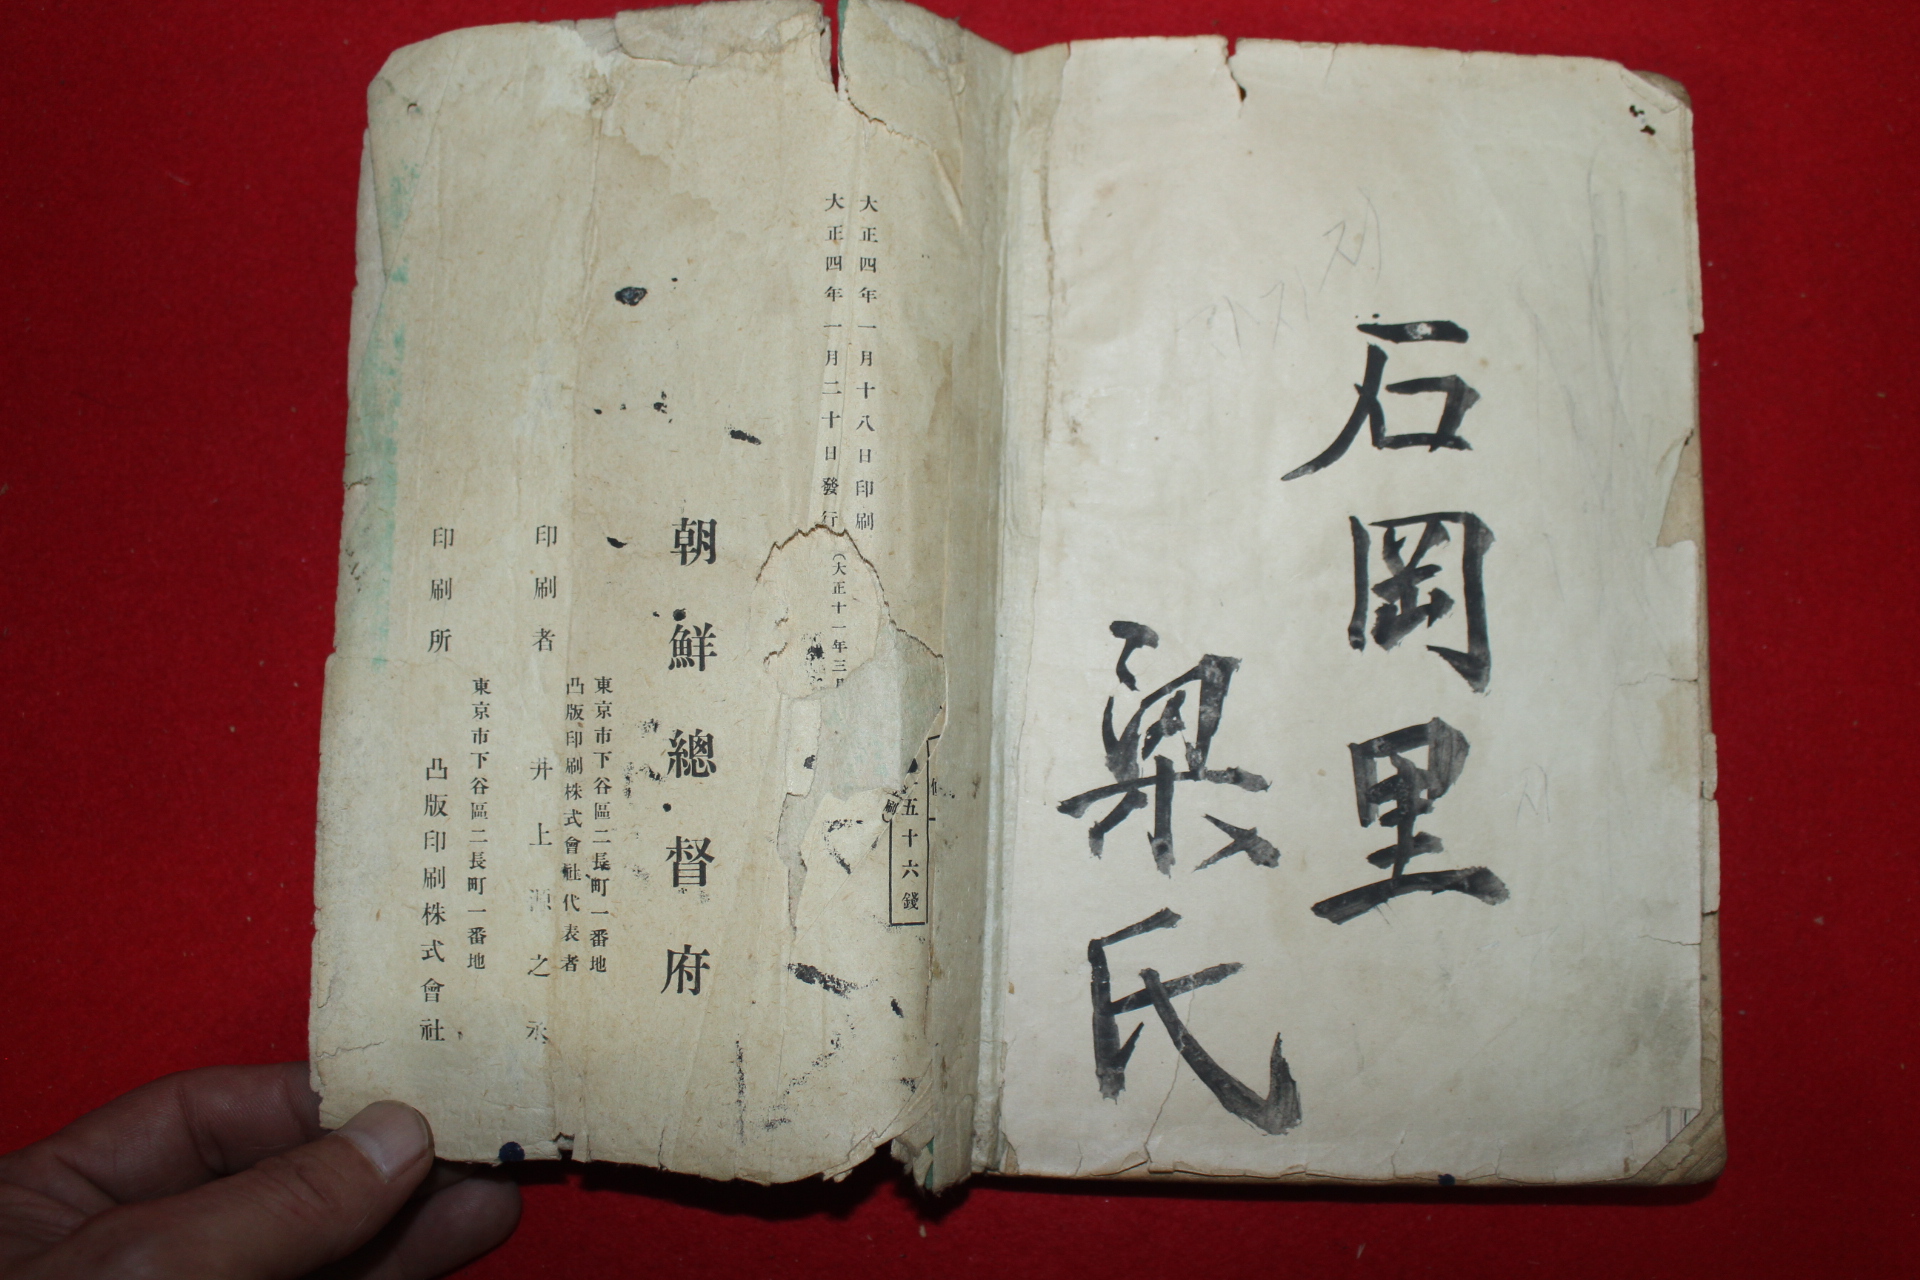 石岡里
梁氏
大正四年一月十八日印刷
大正四年一月二十日發行
(大正十一年三月
五十六錢
朝鮮總督府
東京市下谷區二長町一番地
凸版印刷株式會社代表者
印刷者 井上源之丞
東京市下谷區二長町一番地
印刷所 凸版印刷株式會社